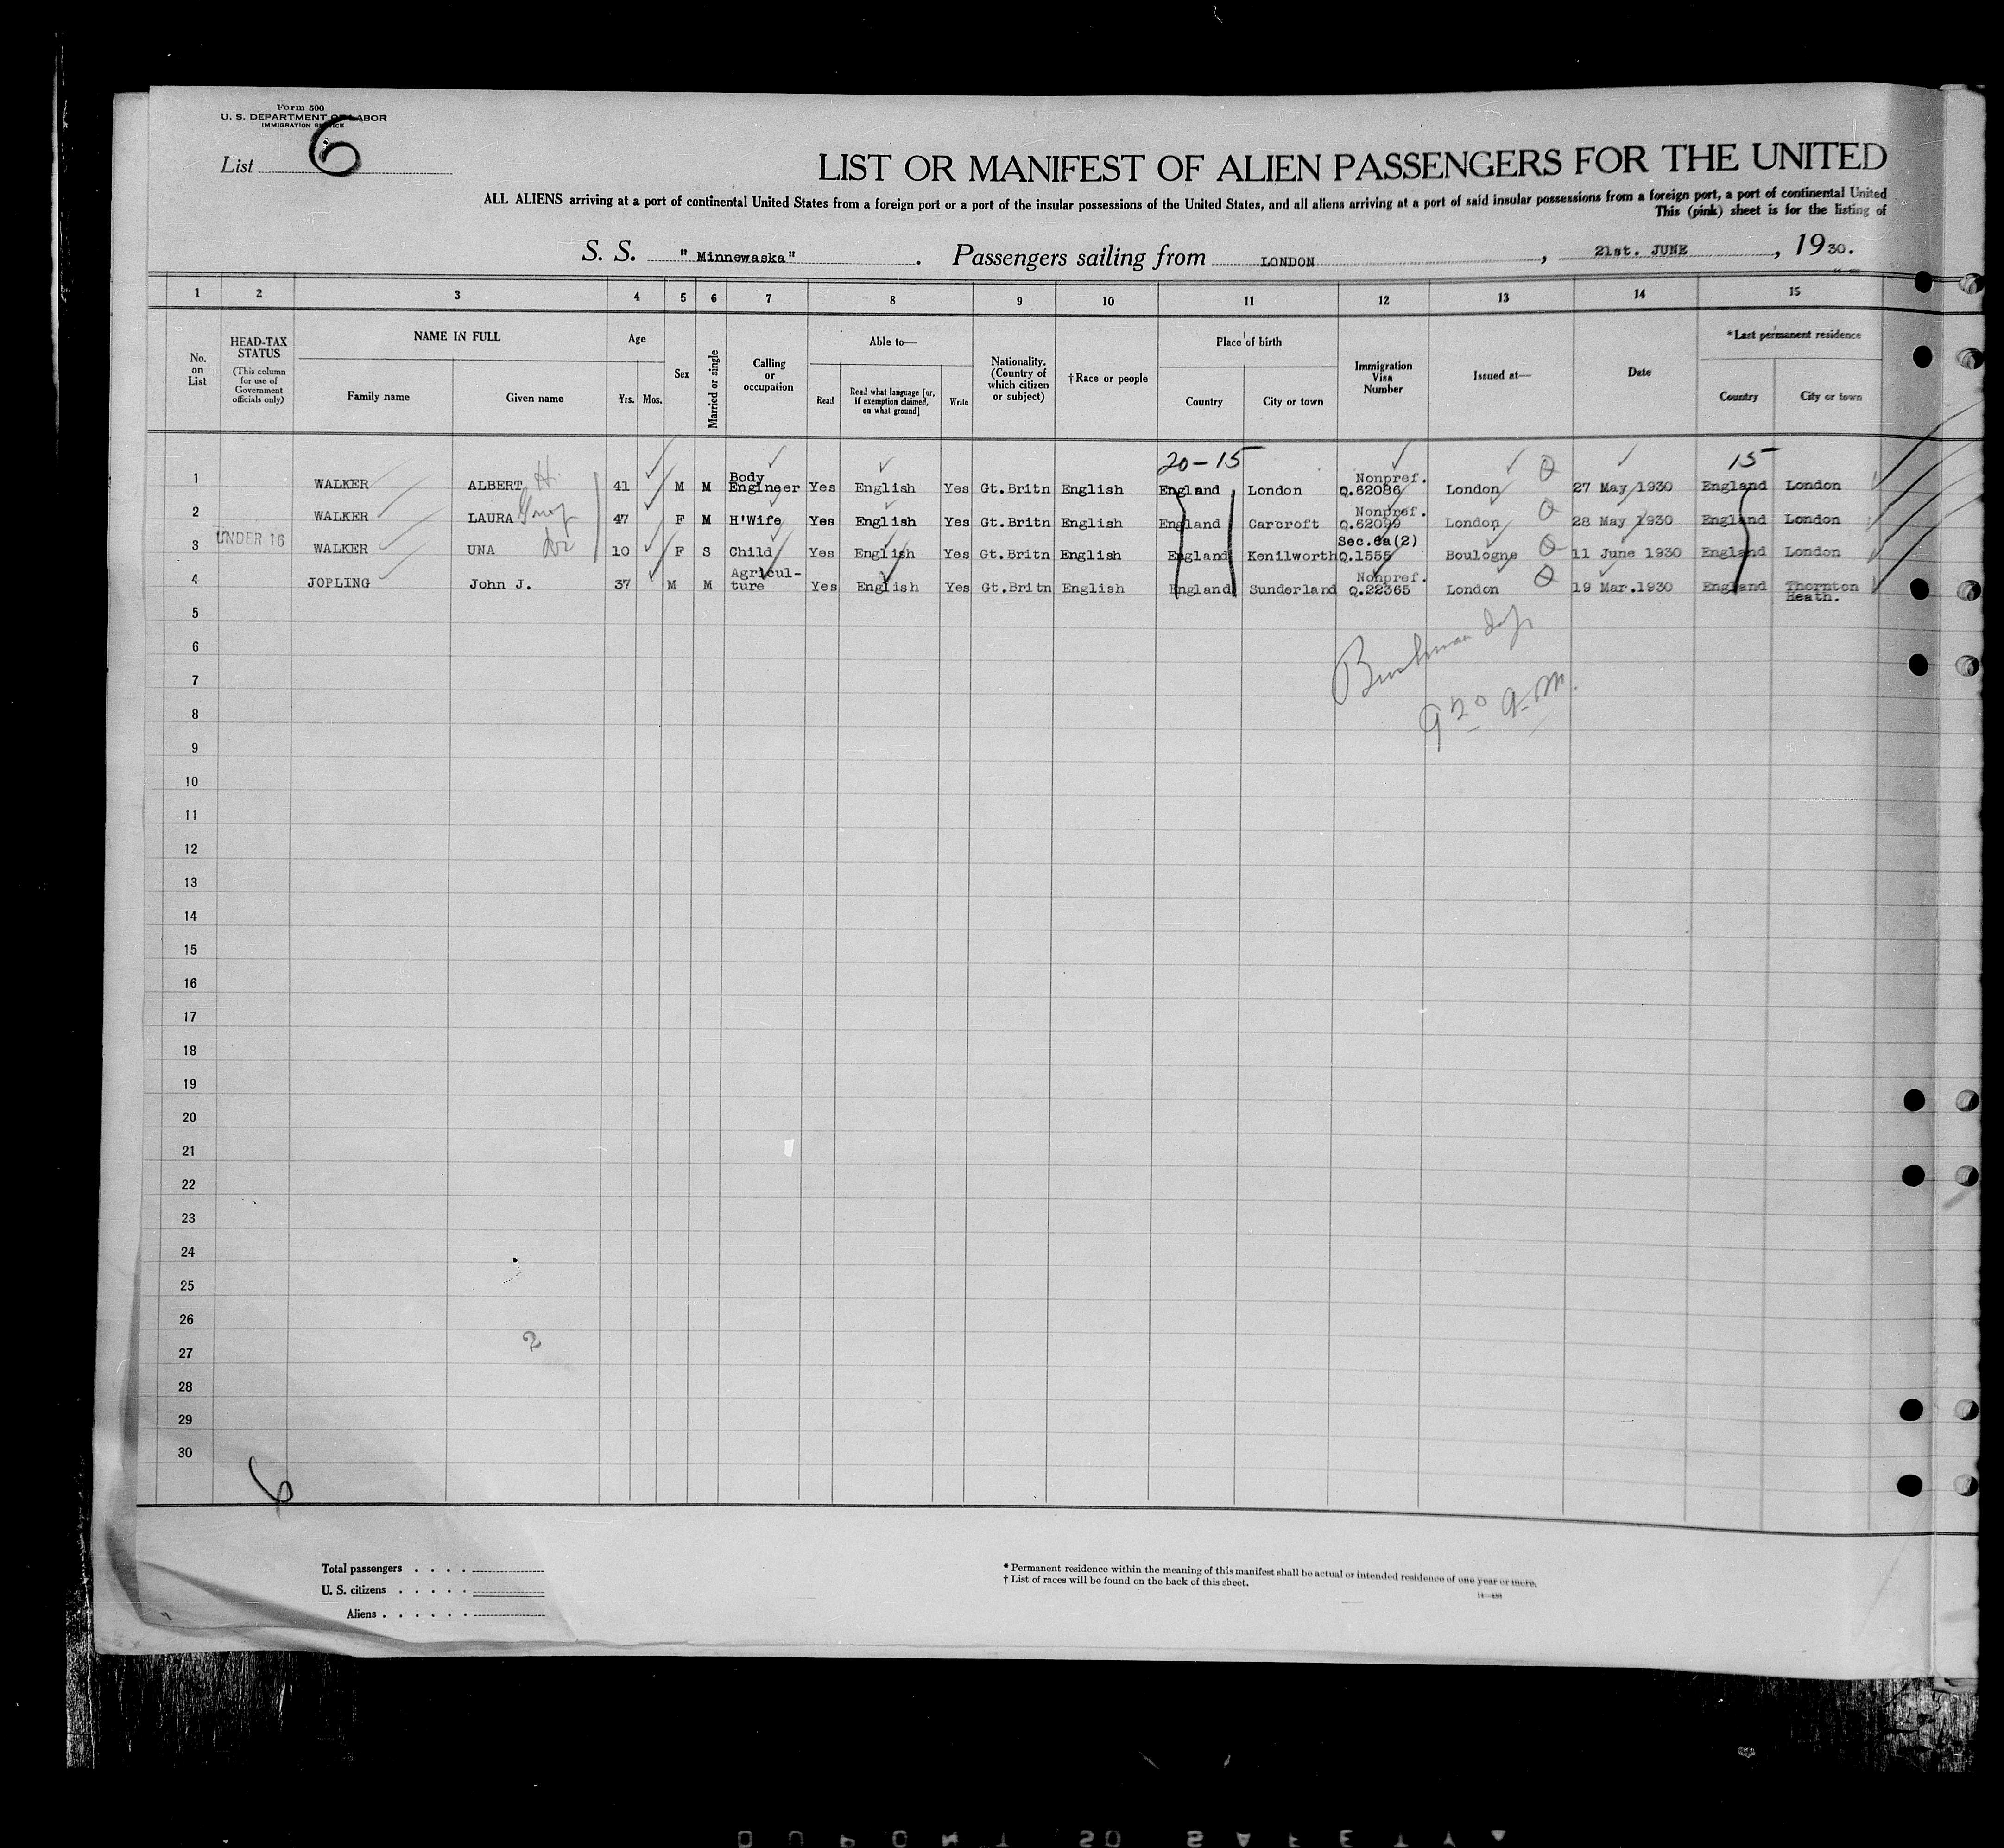 Form 500
U. S. DEPARTMENT OF LABOR
IMMIGRATION SERVICE
List 6
LIST OR MANIFEST OF ALIEN PASSENGERS FOR THE UNITED
ALL ALIENS arriving at a port of continental United States from a foreign port or a port of the insular possessions of the United States, and all aliens arriving at a port of said insular possessions from a foreign port, a port of continental United
This (pink) sheet is for the listing of
S. S. "Minnewaska". Passengers sailing from LONDON, 21st. JUNE, 1930.
1 2 3 4 5 6 7 8 9 10 11 12 13 14 15
No. on List
HEAD-TAX STATUS (This column for use of Government officials only)
NAME IN FULL
Family name
Given name
Age
Yrs. Mos.
Sex
Married or single
Calling or occupation
Able to—
Read
Read what language [or, if exemption claimed, on what ground]
Write
Nationality. (Country of which citizen or subject)
†Race or people
Place of birth
Country
City or town
Immigration Visa Number
Issued at—
Date
*Last permanent residence
Country
City or town
20-15 15
1 WALKER ALBERT H. 41 M M Body Engineer Yes English Yes Gt.Britn English England London Nonpref. Q.62086 London 27 May 1930 England London
2 WALKER LAURA 47 F M H'Wife Yes English Yes Gt.Britn English England Carcroft Nonpref. Q.62099 London 28 May 1930 England London
3 UNDER 16 WALKER UNA 10 F S Child Yes English Yes Gt.Britn English England Kenilworth Sec.6a(2) Q.1555 Boulogne 11 June 1930 England London
4 JOPLING John J. 37 M M Agricul-ture Yes English Yes Gt.Britn English England Sunderland Nonpref. Q.22365 London 19 Mar.1930 England Thornton Heath.
5
6
7
9 20 a.m.
8
9
10
11
12
13
14
15
16
17
18
19
20
21
22
23
24
25
26
2
27
28
29
30
6
Total passengers . . . .
U. S. citizens . . . . .
Aliens . . . . . .
* Permanent residence within the meaning of this manifest shall be actual or intended residence of one year or more.
† List of races will be found on the back of this sheet.
DUPONT SO SAFETY